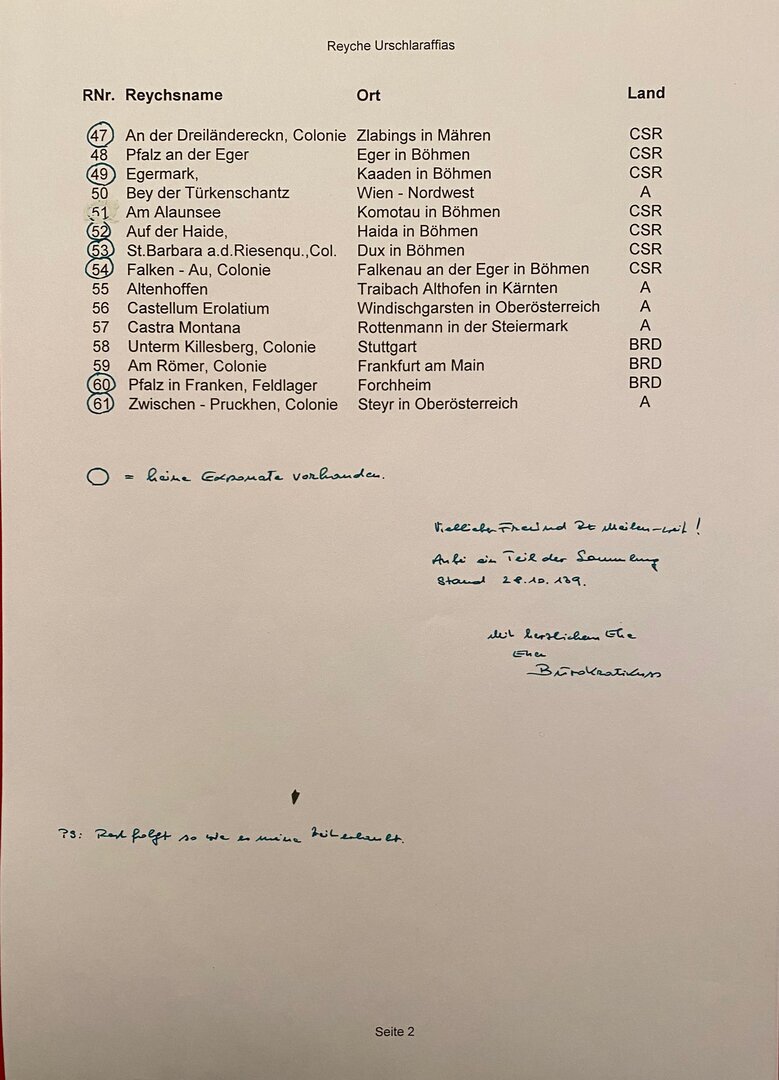 Reyche Urschlaraffias
RNr. Reychsname Ort Land
47 An der Dreiländereckn, Colonie Zlabings in Mähren CSR
48 Pfalz an der Eger Eger in Böhmen CSR
49 Egermark, Kaaden in Böhmen CSR
50 Bey der Türkenschantz Wien - Nordwest A
51 Am Alaunsee Komotau in Böhmen CSR
52 Auf der Haide, Haida in Böhmen CSR
53 St.Barbara a.d.Riesenqu.,Col. Dux in Böhmen CSR
54 Falken - Au, Colonie Falkenau an der Eger in Böhmen CSR
55 Altenhoffen Traibach Althofen in Kärnten A
56 Castellum Erolatium Windischgarsten in Oberösterreich A
57 Castra Montana Rottenmann in der Steiermark A
58 Unterm Killesberg, Colonie Stuttgart BRD
59 Am Römer, Colonie Frankfurt am Main BRD
60 Pfalz in Franken, Feldlager Forchheim BRD
61 Zwischen - Pruckhen, Colonie Steyr in Oberösterreich A
= keine Exponate vorhanden.
Viellieber Freund Rt Meilen-weit!
Anbei ein Teil der Sammlung
Stand 28.10.139.
Mit herzlichem Ehe
Euer
Bürokratikuss
PS: Rest folgt so wie es meine Zeit erlaubt.
Seite 2